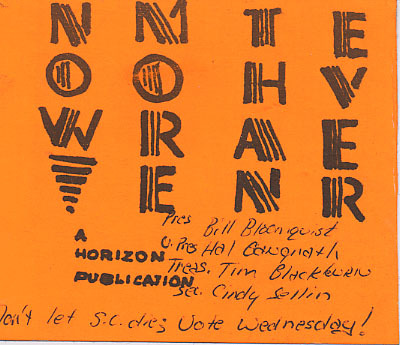 NOW
MORE
THAN
EVER
A
HORIZON
PUBLICATION
Pres Bill Blomquist
V. Pres Hal
Treas. Tim Blackburn
Sec. Cindy Sellin
Don't let S.C. die; Vote Wednesday!